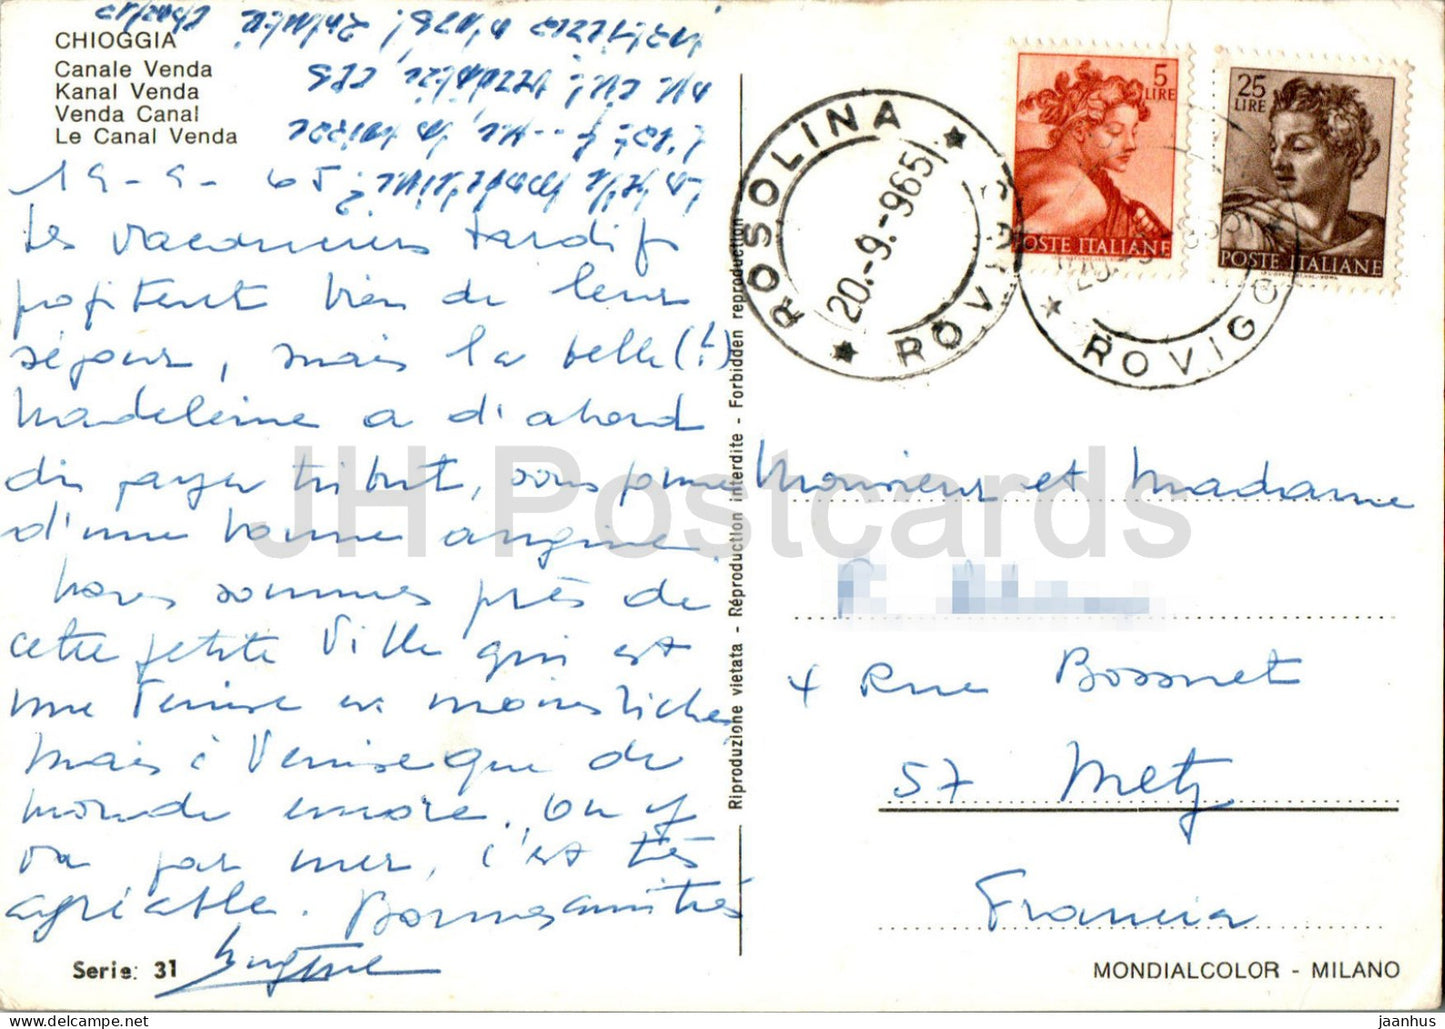 CHIOGGIA
Canale Venda
Kanal Venda
Venda Canal
Le Canal Venda
19-9-65
Les vacanciers tardifs
profitent bien de leur
séjour, mais la belle (?)
Madeleine a d'abord
dû payer tribut, sous forme
d'une bonne angine.
Nous sommes près de
cette petite Ville qui est
une Venise en moins riche,
mais à Venise que de
monde encore. On y
va par mer, c'est très
agréable. Bonnes amitiés
Serie: 31
Riproduzione vietata - Réproduction interdite - Forbidden reproduction
ROSOLINA
ROVIGO
20.-9.-965
ROVIGO
5
LIRE
POSTE ITALIANE
25
LIRE
POSTE ITALIANE
Monsieur et Madame
4 Rue Bossuet
57 Metz
Francia
MONDIALCOLOR - MILANO
JH Postcards
www.delcampe.net
jaanhus